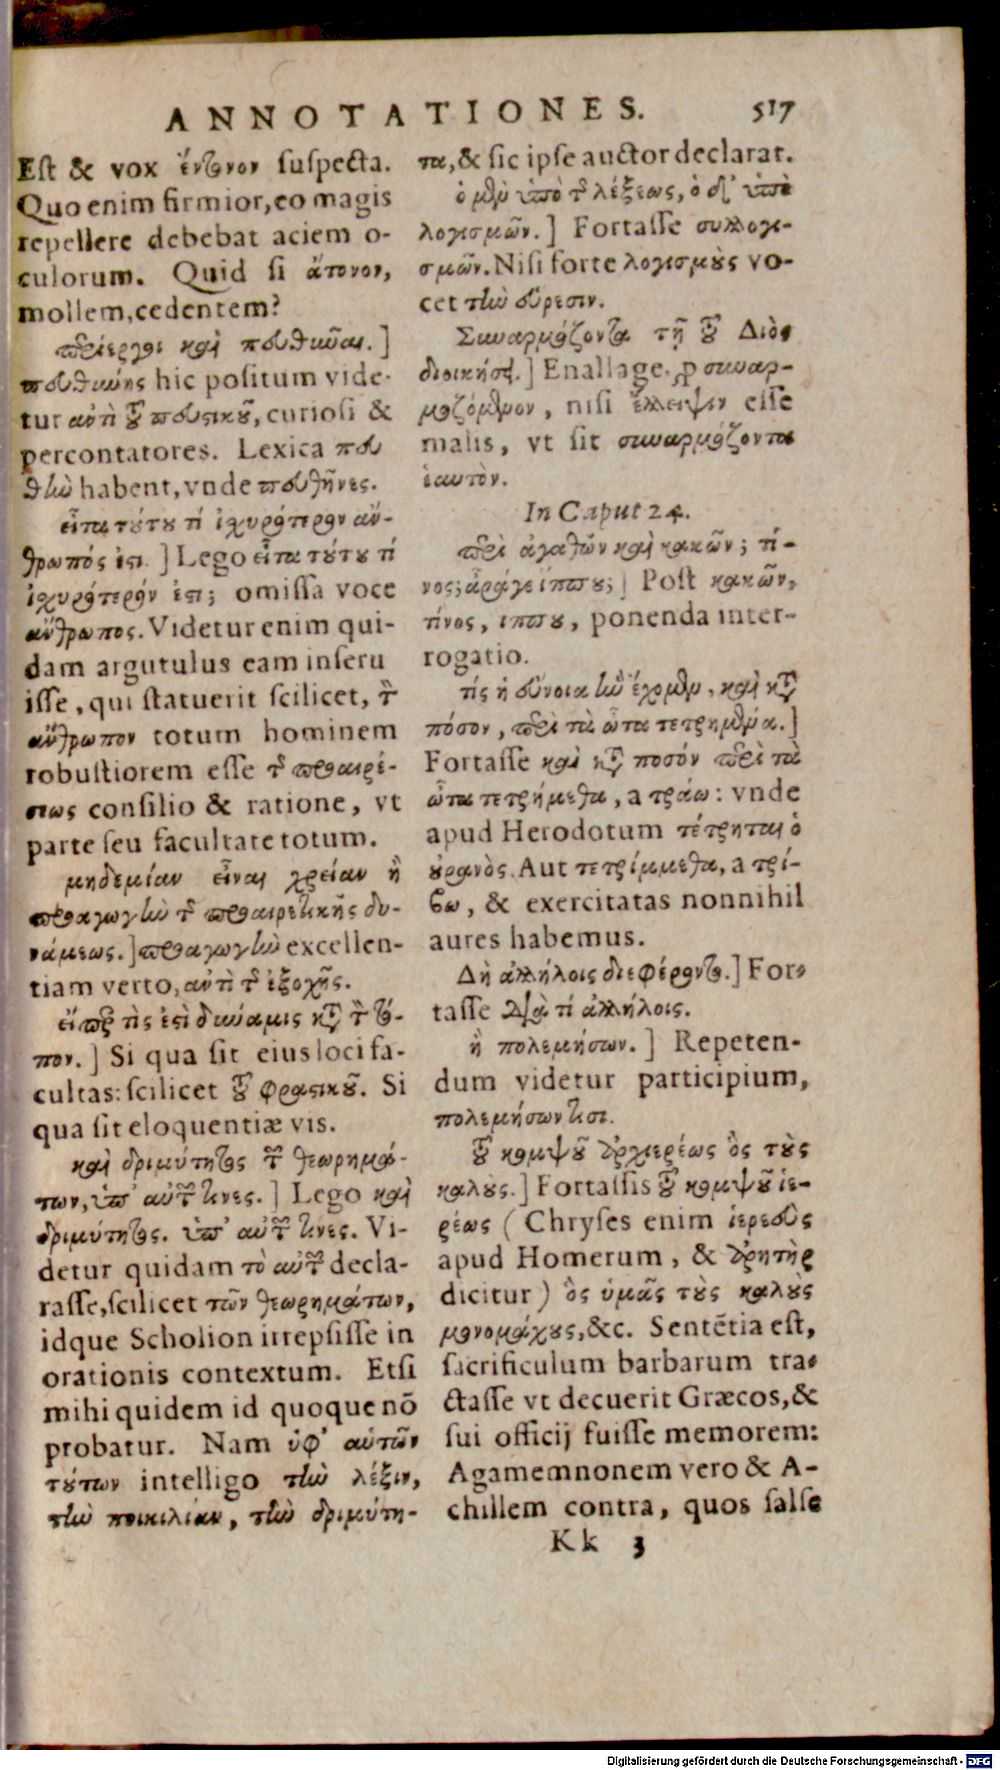 ANNOTATIONES. 517
Est & vox ἔντονον suspecta.
Quo enim firmior, eo magis
repellere debebat aciem o-
culorum. Quid si ἄτονον,
mollem, cedentem?
περίεργοι καὶ πευθῆναι.]
πευθῆνης hic positum vide-
tur ἀντὶ τοῦ πευστικοῦ, curiosi &
percontatores. Lexica πευ
θὴν habent, vnde πευθῆνες.
εἶτα τούτου τί ἰσχυρότερον ἄν-
θρωπός ἐστι.] Lego εἶτα τούτου τί
ἰσχυρότερόν ἐστι; omissa voce
ἄνθρωπος. Videtur enim qui-
dam argutulus eam inseru
isse, qui statuerit scilicet, τὸν
ἄνθρωπον totum hominem
robustiorem esse τῆς προαιρέ-
σεως consilio & ratione, vt
parte seu facultate totum.
μηδεμίαν εἶναι χρείαν ἢ
προαγωγὴν τῆς προαιρετικῆς δυ-
νάμεως.] προαγωγὴν excellen-
tiam verto, ἀντὶ τῆς ἐξοχῆς.
εἴπερ τὶς ἐστὶ δύναμις κατὰ τὸν τό-
πον.] Si qua sit eius loci fa-
cultas: scilicet τοῦ φραστικοῦ. Si
qua sit eloquentiæ vis.
καὶ δριμύτητος τῶν θεωρημά-
των, ὑπ' αὐτῶν τινες.] Lego καὶ
δριμύτητος. ὑπ' αὐτῶν τινες. Vi-
detur quidam τὸ αὐτῶν decla-
rasse, scilicet τῶν θεωρημάτων,
idque Scholion irrepsisse in
orationis contextum. Etsi
mihi quidem id quoque nō
probatur. Nam ὑφ' αὑτῶν
τούτων intelligo τὴν λέξιν,
τὴν ποικιλίαν, τὴν δριμύτη-
τα, & sic ipse auctor declarat.
ὁ μὲν ὑπὸ τῆς λέξεως, ὁ δ' ὑπὸ
λογισμῶν.] Fortasse συλλογι-
σμῶν. Nisi forte λογισμοὺς vo-
cet τὴν εὕρεσιν.
Συναρμόζοντα τῇ τοῦ Διὸς
διοικήσει.] Enallage. pro συναρ-
μοζόμενον, nisi ἔλλειψιν esse
malis, vt sit συναρμόζοντα
ἑαυτὸν.
In Caput 24.
περὶ ἀγαθῶν καὶ κακῶν; τί-
νος; ἆράγε ἵππου;] Post κακῶν,
τίνος, ἵππου, ponenda inter-
rogatio.
τίς ἡ εὔνοια ἣν ἔχομεν, καὶ κατὰ
πόσον, περὶ τὰ ὦτα τετρημένα.]
Fortasse καὶ κατὰ ποσόν περὶ τὰ
ὦτα τετρήμεθα, a τράω: vnde
apud Herodotum τέτρηται ὁ
οὐρανὸς. Aut τετρίμμεθα, a τρί-
βω, & exercitatas nonnihil
aures habemus.
Δὴ ἀλλήλοις διεφέροντο.] For-
tasse Διὰ τί ἀλλήλοις.
ἢ πολεμήσων.] Repeten-
dum videtur participium,
πολεμήσων τισι.
τοῦ κομψοῦ ἀρχιερέως ὃς τοὺς
καλοὺς.] Fortassis τοῦ κομψοῦ ἱε-
ρέως (Chryses enim ἱερεὺς
apud Homerum, & ἀρητὴρ
dicitur) ὃς ὑμᾶς τοὺς καλοὺς
μονομάχους, &c. Sentētia est,
sacrificulum barbarum tra-
ctasse vt decuerit Græcos, &
sui officij fuisse memorem:
Agamemnonem vero & A-
chillem contra, quos salse
Kk 3
Digitalisierung gefördert durch die Deutsche Forschungsgemeinschaft - DFG